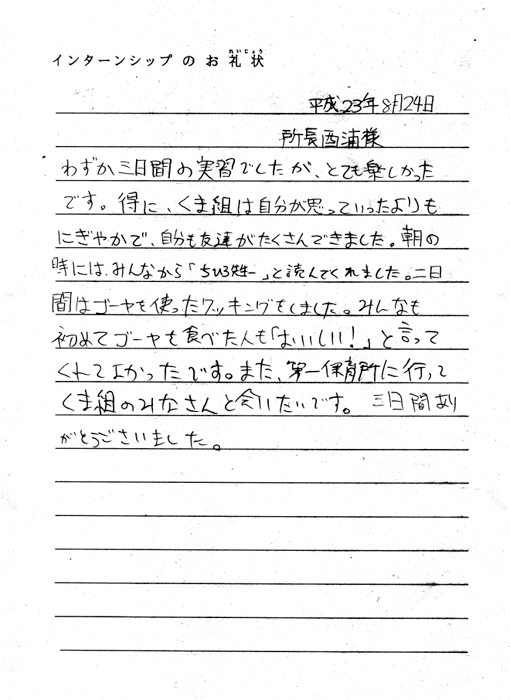 インターンシップのお礼状
れいじょう
平成23年8月24日
所長西浦様
わずか三日間の実習でしたが、とても楽しかった
です。得に、くま組は自分が思っていったよりも
にぎやかで、自分も友達がたくさんできました。朝の
時には、みんなから「ちひろ先生」と読んでくれました。二日
間はゴーヤを使ったクッキングをしました。みんなも
初めてゴーヤを食べた人も「おいしい!」と言って
くれてよかったです。また、第一保育所に行って
くま組のみなさんと会いたいです。三日間あり
がとうございました。